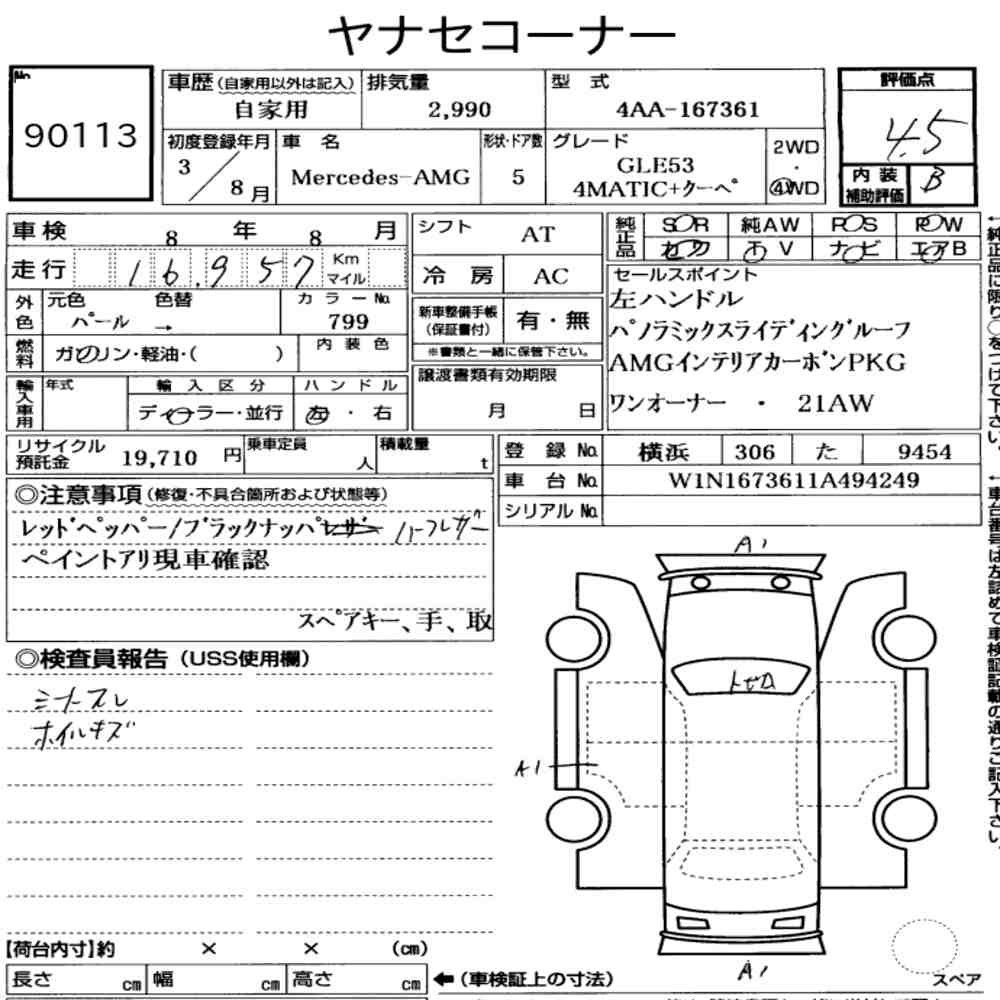 ヤナセコーナー
No.
90113
車歴(自家用以外は記入)
自家用
排気量
2,990
型 式
4AA-167361
評価点
4.5
初度登録年月
3 / 8月
車 名
Mercedes-AMG
形状・ドア数
5
グレード
GLE53
4MATIC+クーペ
2WD
・
4WD
内装
補助評価
B
車検 8 年 8 月
走行 16,957 Km マイル
シフト AT
冷房 AC
純正品 S・R 純AW P・S P・W
カワ T V ナビ エアB
外色 元色 色替
パール →
カラーNo.
799
燃料 ガソリン・軽油・( )
内装色
新車整備手帳
(保証書付)
有・無
※書類と一緒に保管下さい。
セールスポイント
左ハンドル
パノラミックスライディングルーフ
AMGインテリアカーボンPKG
ワンオーナー ・ 21AW
輸入車用 年式 輸入区分 ハンドル
ディーラー・並行 左・右
譲渡書類有効期限
月 日
リサイクル
預託金 19,710 円
乗車定員
人
積載量
t
登録No. 横浜 306 た 9454
車台No. W1N1673611A494249
シリアルNo.
◎注意事項(修復・不具合箇所および状態等)
レッドペッパー/ブラックナッパレザー ハーフレザー
ペイントアリ現車確認
スペアキー、手、取
◎検査員報告(USS使用欄)
ミナースレ
ホイルキズ
A1
トビA
A1
A1
スペア
【荷台内寸】約 × × (cm)
長さ cm 幅 cm 高さ cm
←(車検証上の寸法)
←純正品に限り○をつけて下さい。
←車台番号は左詰めで車検証記載の通りご記入下さい。